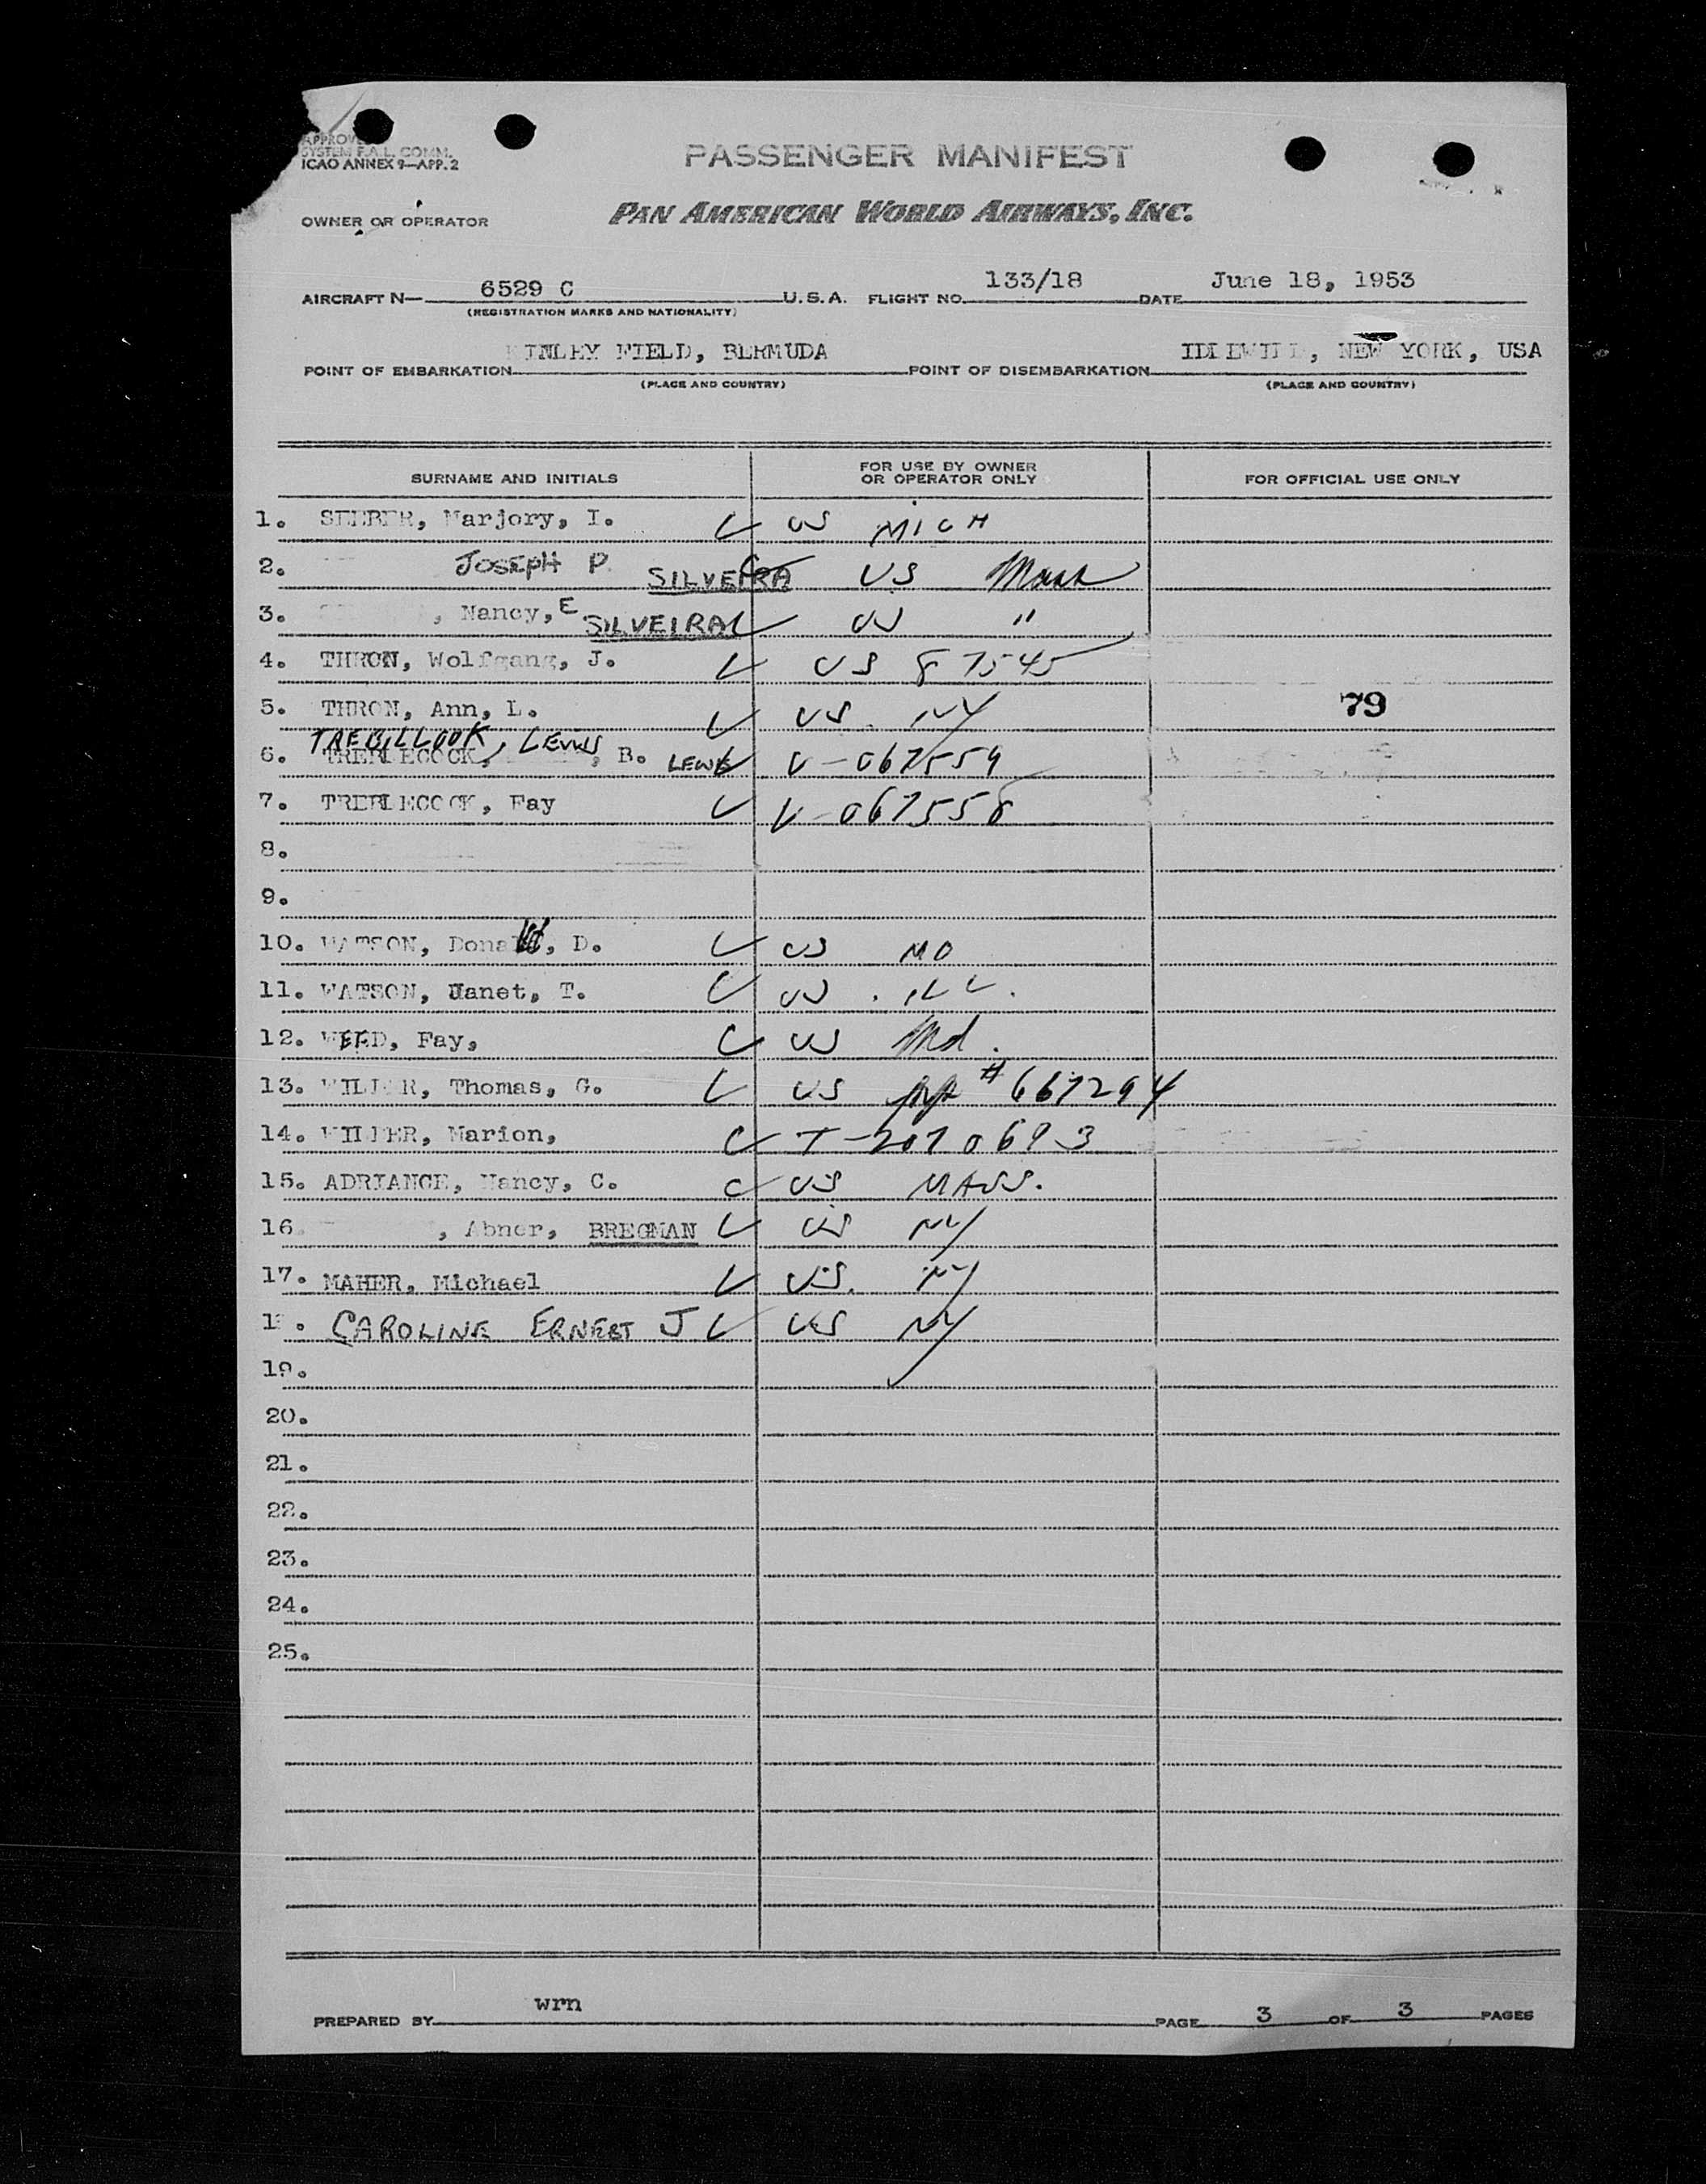 APPROVED
SYSTEM F.A.L. COMM.
ICAO ANNEX 9—APP. 2
PASSENGER MANIFEST
OWNER OR OPERATOR PAN AMERICAN WORLD AIRWAYS, INC.
AIRCRAFT N— 6529 C U.S.A. FLIGHT NO. 133/18 DATE June 18, 1953
(REGISTRATION MARKS AND NATIONALITY)
POINT OF EMBARKATION KINLEY FIELD, BERMUDA POINT OF DISEMBARKATION IDLEWILD, NEW YORK, USA
(PLACE AND COUNTRY) (PLACE AND COUNTRY)
SURNAME AND INITIALS FOR USE BY OWNER OR OPERATOR ONLY FOR OFFICIAL USE ONLY
1. SEEBER, Marjory, I. US MICH
2. JOSEPH P. SILVEIRA US Mass
3. , Nancy, E SILVEIRA US "
4. THRON, Wolfgang, J. US 87545
5. THRON, Ann, L. US. NY 79
TREBILLCOCK, LEWIS
6. TREBLECOCK, , B. LEWIS V-067559
7. TREBLECOCK, Fay V-067558
8.
9.
10. WATSON, Donald, D. US MO
11. WATSON, Janet, T. US . ILL.
12. WEED, Fay, US Md.
13. WILDER, Thomas, G. US # 667294
14. WILDER, Marion, T-2070693
15. ADRIANCE, Nancy, C. US MASS.
16. , Abner, BREGMAN US NY
17. MAHER, Michael US. NY
18. CAROLINE ERNEST J US NY
19.
20.
21.
22.
23.
24.
25.
PREPARED BY wrn PAGE 3 OF 3 PAGES